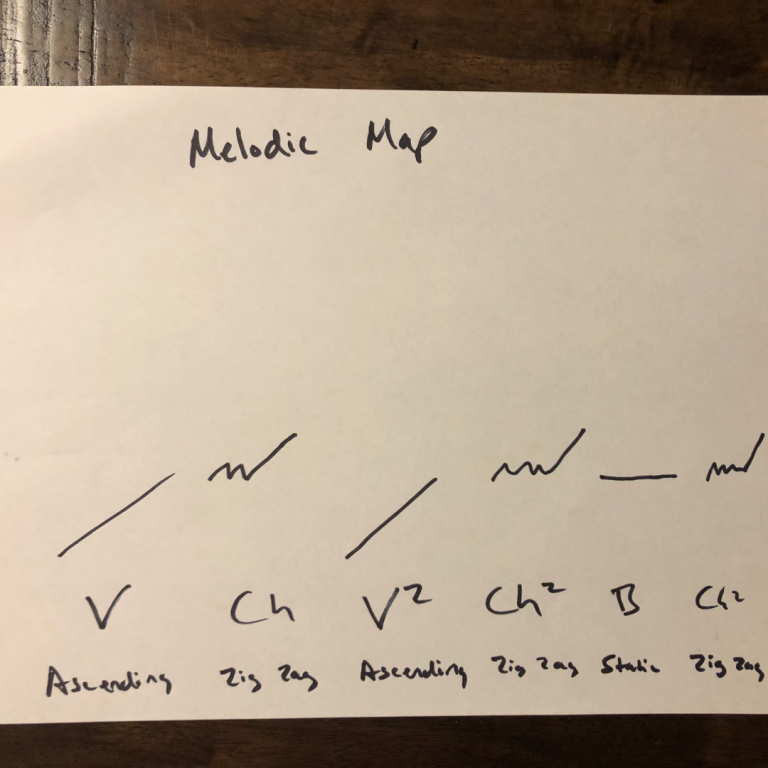 Melodic Map
V Ch V² Ch² B Ch²
Ascending Zig Zag Ascending Zig Zag Static Zig Zag